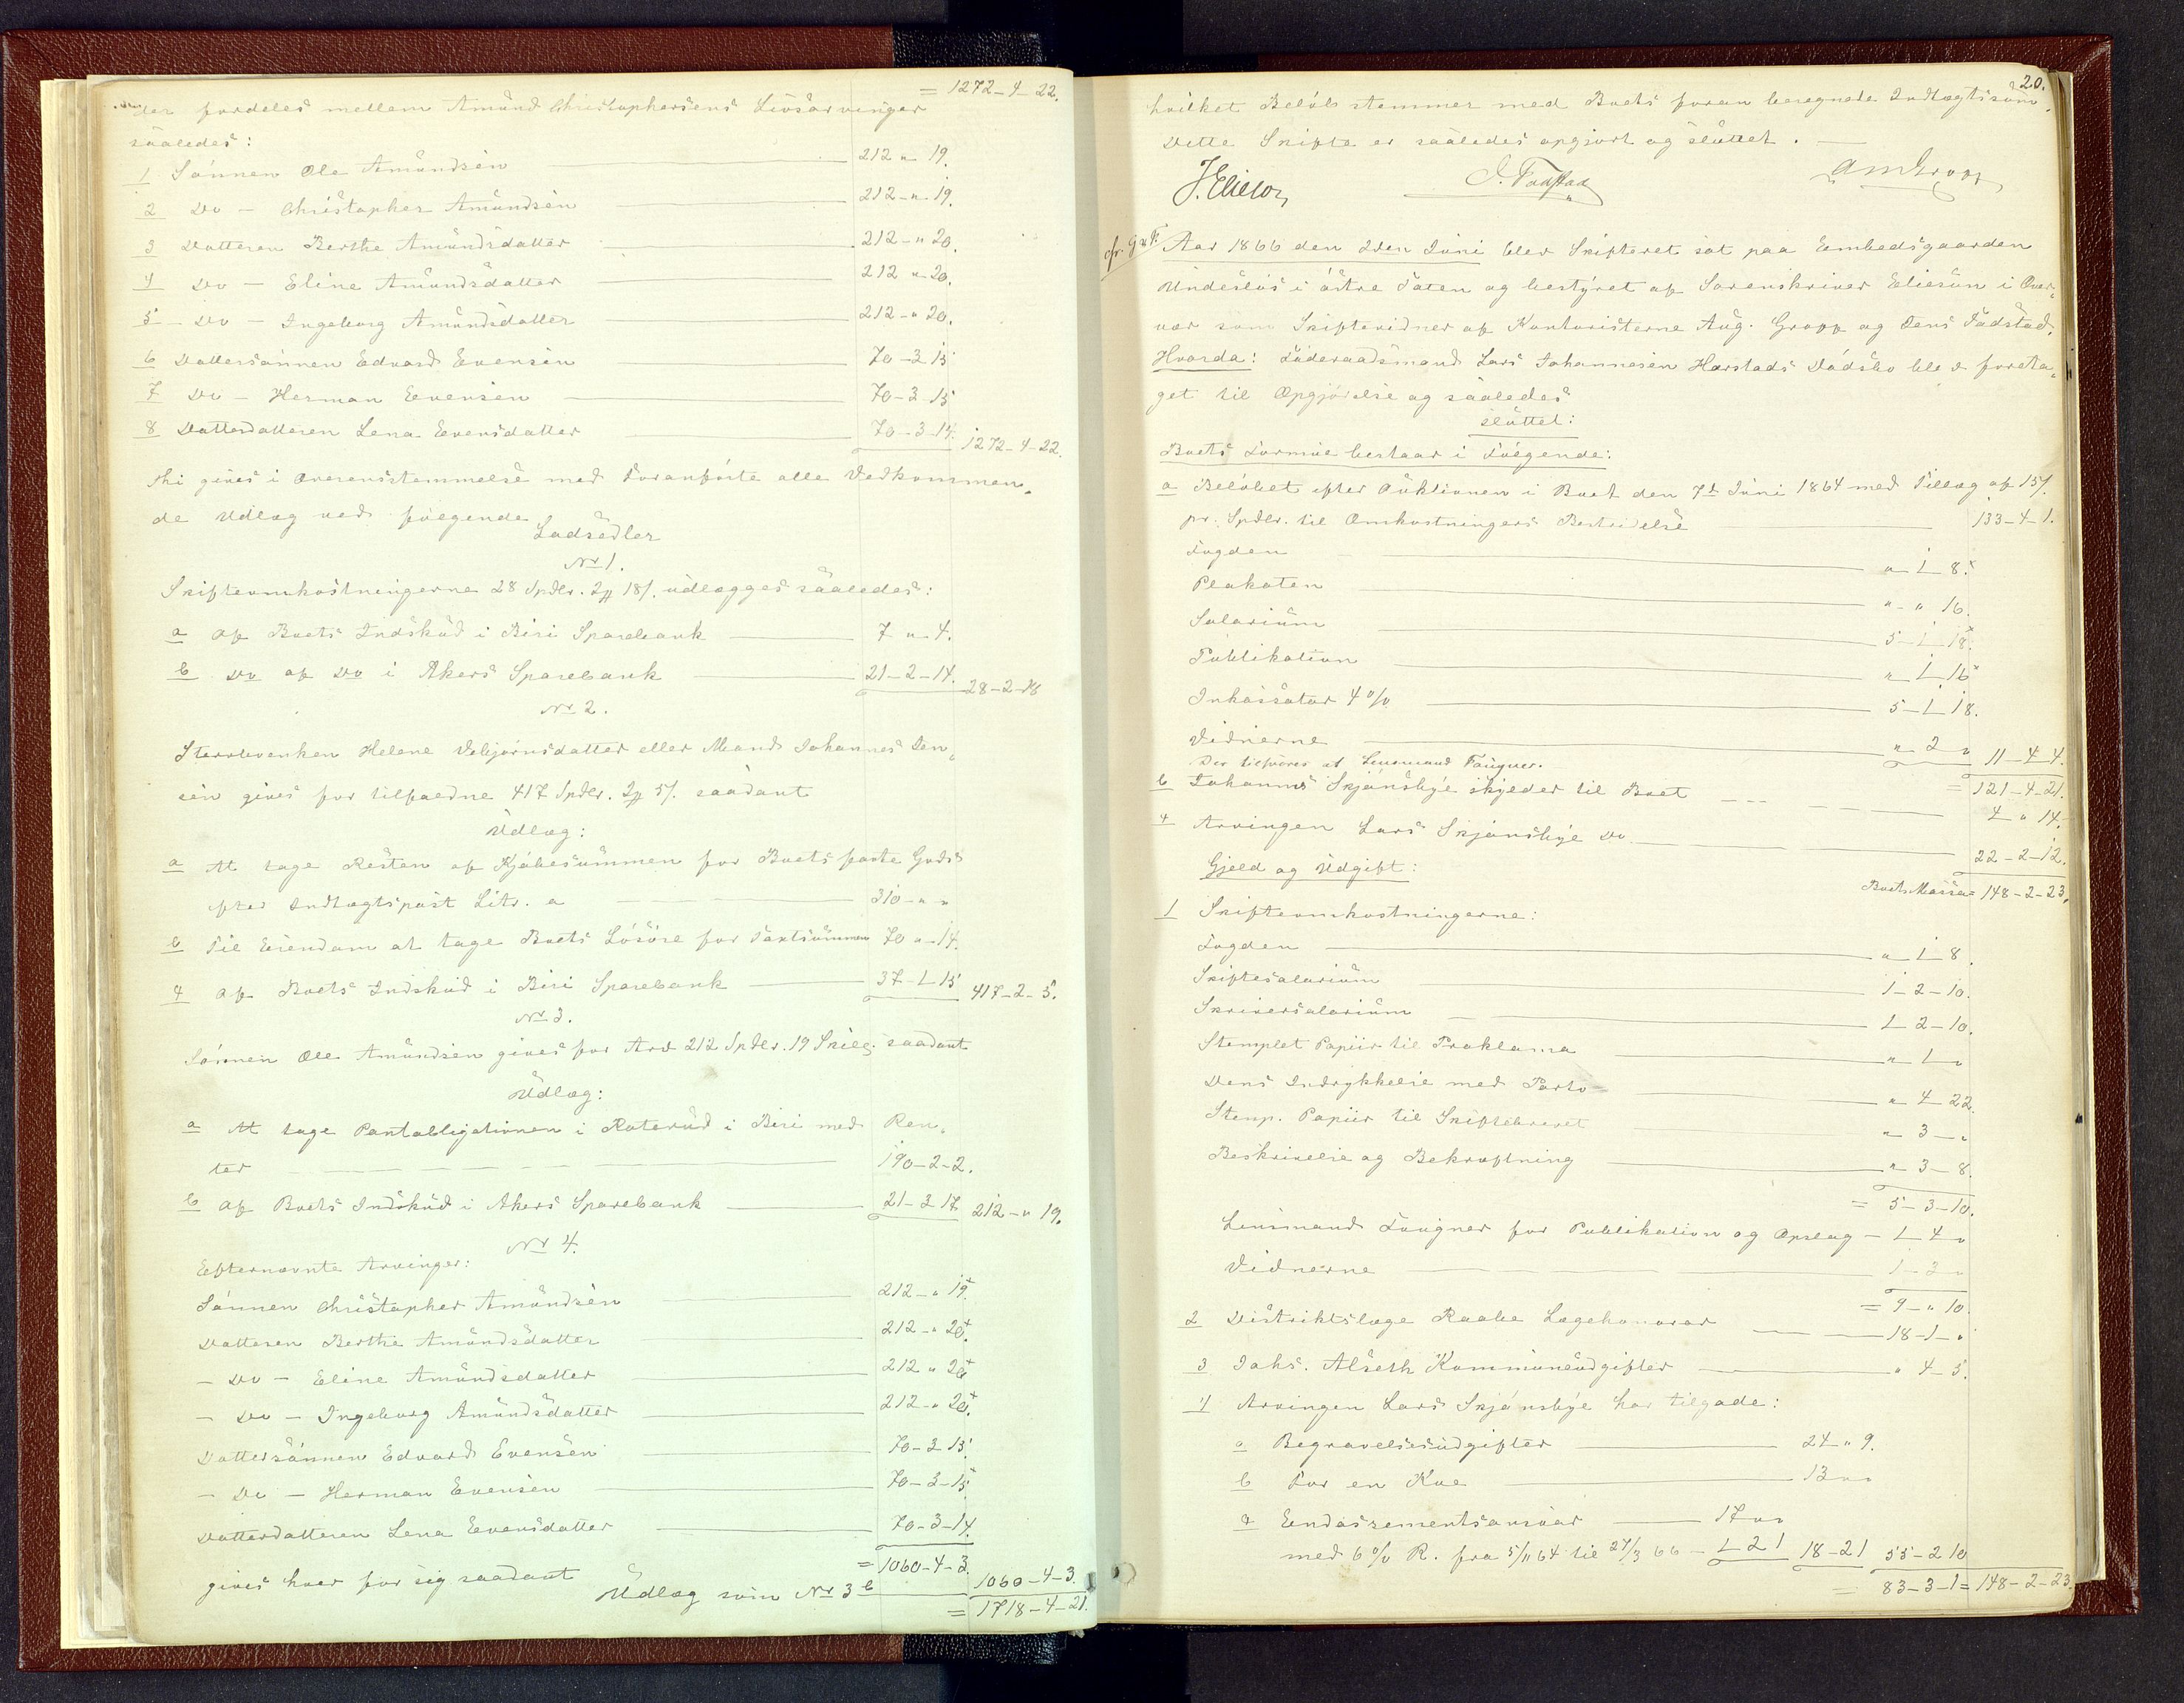 = 1272-4-22.
der fordeles mellem Amund Christophersens Livsarvinger
saaledes:
1 Sönnen Ole Amundsen 212 " 19.
2 Do - Christopher Amundsen 212 - " - 19.
3 Datteren Berthe Amundsdatter 212 - " 20.
4 Do - Eline Amundsdatter 212 " 20.
5 - Do - Ingeborg Amundsdatter 212 - " 20.
6 Dattersönnen Edvard Evensen 70-3 15
7 Do - Herman Evensen 70-3-15
8 Datterdatteren Lena Evensdatter 70-3-14. 1272-4-22.
Thi gives i Overensstemmelse med Foranförte alle Vedkommen-
de Udlæg ved følgende
Lodsedler
No 1.
Skifteomkostningerne 28 Spdlr. 2 18 /. udlægges saaledes:
a af Boets Indskud i Biri Sparebank 7 " 4.
b Do af Do i Akers Sparebank 21-2-14. 28-2-18
No 2.
Stervbenken Helene Vebjørnsdatter eller Mand Johannes Jen-
sen gives for tilfaldne 417 Spdlr. 2 5 /. saadant
Udlæg:
a At tage Resten af Kjöbesummen for Boets faste Gods
efter Indtægtspost Litr. a 310 - " "
b Til Eiendom at tage Boets Lösöre for Taxtsummen 70 " 14.
c af Boets Indskud i Biri Sparebank 37-1-15 417-2-5.
No 3.
Sönnen Ole Amundsen gives for Arv 212 Spdlr. 19 Skill. saadant
Udlæg:
a At tage Pantobligationen i Roterud i Biri med Ren-
ter 190-2-2.
b af Boets Indskud i Akers Sparebank 21-3 17 212 - " 19.
No 4.
Efternævnte Arvinger:
Sönnen Christopher Amundsen 212 - " 19.
Datteren Berthe Amundsdatter 212 - " 20.
- Do - Eline Amundsdatter 212 " 20
- Do - Ingeborg Amundsdatter 212 - " 20.
Dattersönnen Edvard Evensen 70-3 15.
- Do - Herman Evensen 70-3-15
Datterdatteren Lena Evensdatter 70-3-14.
= 1060-4-3. 1060-4-3.
gives hver for sig saadant
Udlæg som No 3 b = 1718-4-21.
20.
hvilket Belöb stemmer med Boets foran beregnede Indtægtssum.
Dette Skifte er saaledes opgjort og sluttet.
J. Elieson J. Fodstad Aug Gropp
Aar 1866 den 2den Juni blev Skifteret sat paa Embedsgaarden
Undeslös i östre Toten og bestyret af Sorenskriver Elieson i Over-
vær som Skiftevidner af Kontoristerne Aug. Gropp og Jens Fodstad.
Hvorda: Föderaadsmand Lars Johannesen Harstads Dödsbo blev foreta-
get til Opgjörelse og saaledes
sluttet:
Boets Formue bestaar i Følgende:
a Belöbet efter Auktionen i Boet den 7de Juni 1864 med Tillæg af 15 /.
pr. Spdlr. til Omkostningers Bestridelse 133-4-1.
Fogden " 1 8.
Plakaten " " 16.
Salarium 5-1-18.
Publikation " 1 16
Inkassator 4 % 5-1 18.
Vidnerne " 2 " 11-4-4.
Der tilsvares af Lensmand Faugner. = 121-4-21.
b Johannes Skjönsbye skylder til Boet 4 " 14.
c Arvingen Lars Skjönsbye Do 22-2-12.
Gjeld og Udgift:
Boets Massa = 148-2-23.
1 Skifteomkostningerne:
Fogden " 1 8.
Skiftesalarium 1-2-10.
Skriversalarium 1 2-10.
Stemplet Papiir til Proklama " 1 "
Dens Indrykkelse med Porto " 4 22.
Stemp. Papiir til Skiftebrevet " 3 - "
Beskrivelse og Bekræftning " 3-8.
= 5-3-10.
Lensmand Faugner for Publikation og Opslag - 1 4 "
Vidnerne 1-3 "
= 9 - " 10.
2 Distriktslæge Raabe Lægehonorar 18-1 - "
3 Johs. Alseth Kommuneudgifter " 4-5.
4 Arvingen Lars Skjönsbye har tilgode:
a Begravelsesudgifter 24 " 9.
b For en Koe 13 " "
c Endossementsansvar 17 " "
med 6 % R. fra 5/11 64 til 27/3 66 - 1 2 1 18-21 55-2 10
= 83-3-1 = 148-2-23.